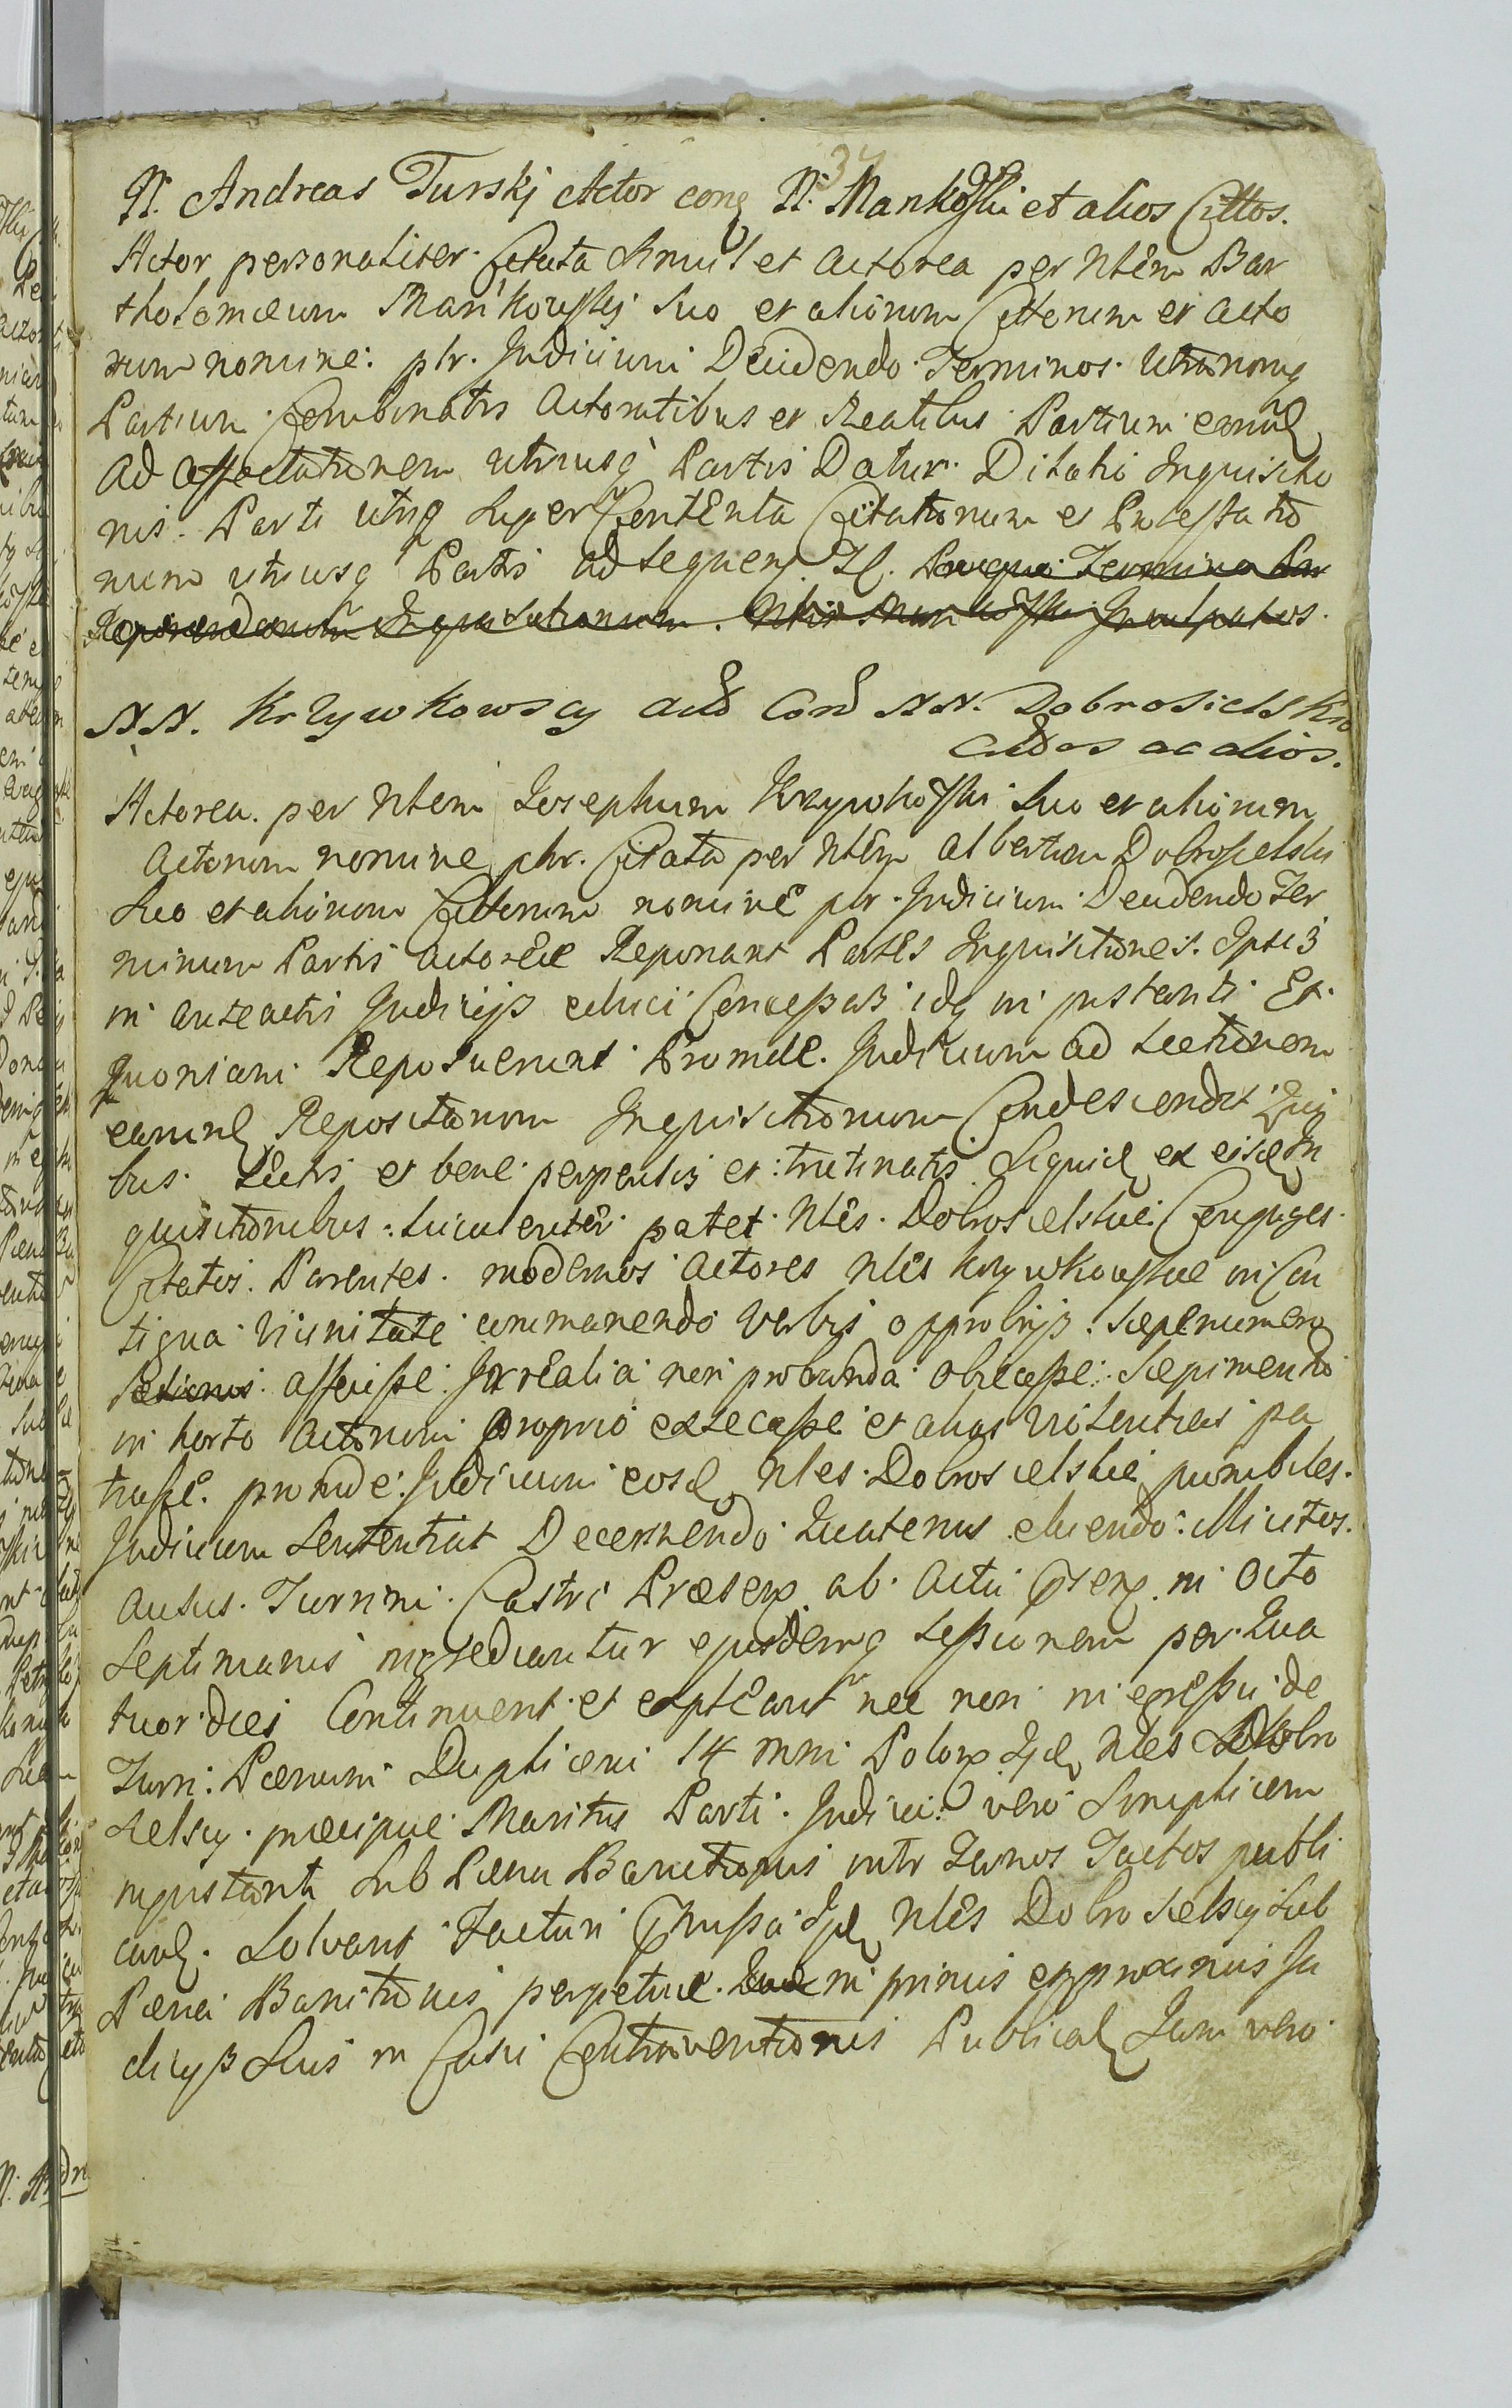 37
N. Andreas Turskj Actor conq N. Mankoski et alios Cittos.
Actor personaliter. Citata simul et actorea per Nlem Bar
tholomæum Mankouskj suo et aliorum Cittorum et acto
rum nomine: plr. Judicium Decidendo Terminos. Utrarumq
Partium Combinatis Actoratibus et Reatibus Partium earund
ad affectationem utriusq Partis Datur. Dilatio Inquisitio
nis. Parti utriq super Contenta Citationum et Protestatio
num utriusq Partis ad sequen.
Reponendarum Inquisitionum.
NN. Krzywkowscy act Con NN. Dobrosielskio
Cittos ac alios.
Actorea. per Nlem Josephum Krzywkoski suo et aliorum
Actorum nomine plr. Citata per Nlem Albertum Dobrosielski
suo et aliorum Cittorum nomine plr. Judicium Decidendo Ter
minum Partis actoreæ Reponant Partes Inquisitiones. Ipsis
in anteactis Judicijs educi Concessas idq in instanti Et
quoniam Reposuerunt Proinde. Judicium ad Lectionem
earund Repositarum Inquisitionum Condescendit Qui
bus. Lectis et bene perpensis et trutinatis Siquid ex eisd In
quisitionibus: luculenter patet Nles. Dobrosielskie Conjuges.
Citatos. Parentes. modernos Actores Nles Krzywkouskie in Con
tigua vicinitate commanendo verbis opprobrijs: sæpenumero
affecisse. Jx realia non probanda objecisse. Sæpimenta
in horto Actorum proprio exsecasse et alias violentias pa
trasse. proinde: Judicium eosd Nles. Dobrosielskie punibiles.
Judicium Sententiat Decernendo Quatenus eluendo. Illicitos.
Ausus. Turrim. Castri Præsen. ab. Actu Præsen. in Octo
Septimanis ingrediantur ejusdemq Sessionem per. Qua
tuor dies Continuent et expleant nec non in egressu de
Turri: Pænam Duplicem 14 mni Polon Ipd Nles Dobro
sielscy. præcipue Maritus Parti. Judicii vero Simplicem
injustant sub Pæna Banitionis intr Lanos Jactos publi
cand. Solvant Facturi Præmissa Ipd Nles Dobrosielscy sub
Pæna Banitionis perpetuæ. in primis et proximis Ju
dicijs Suis in Casu Contraventionis Publicad Jam vero